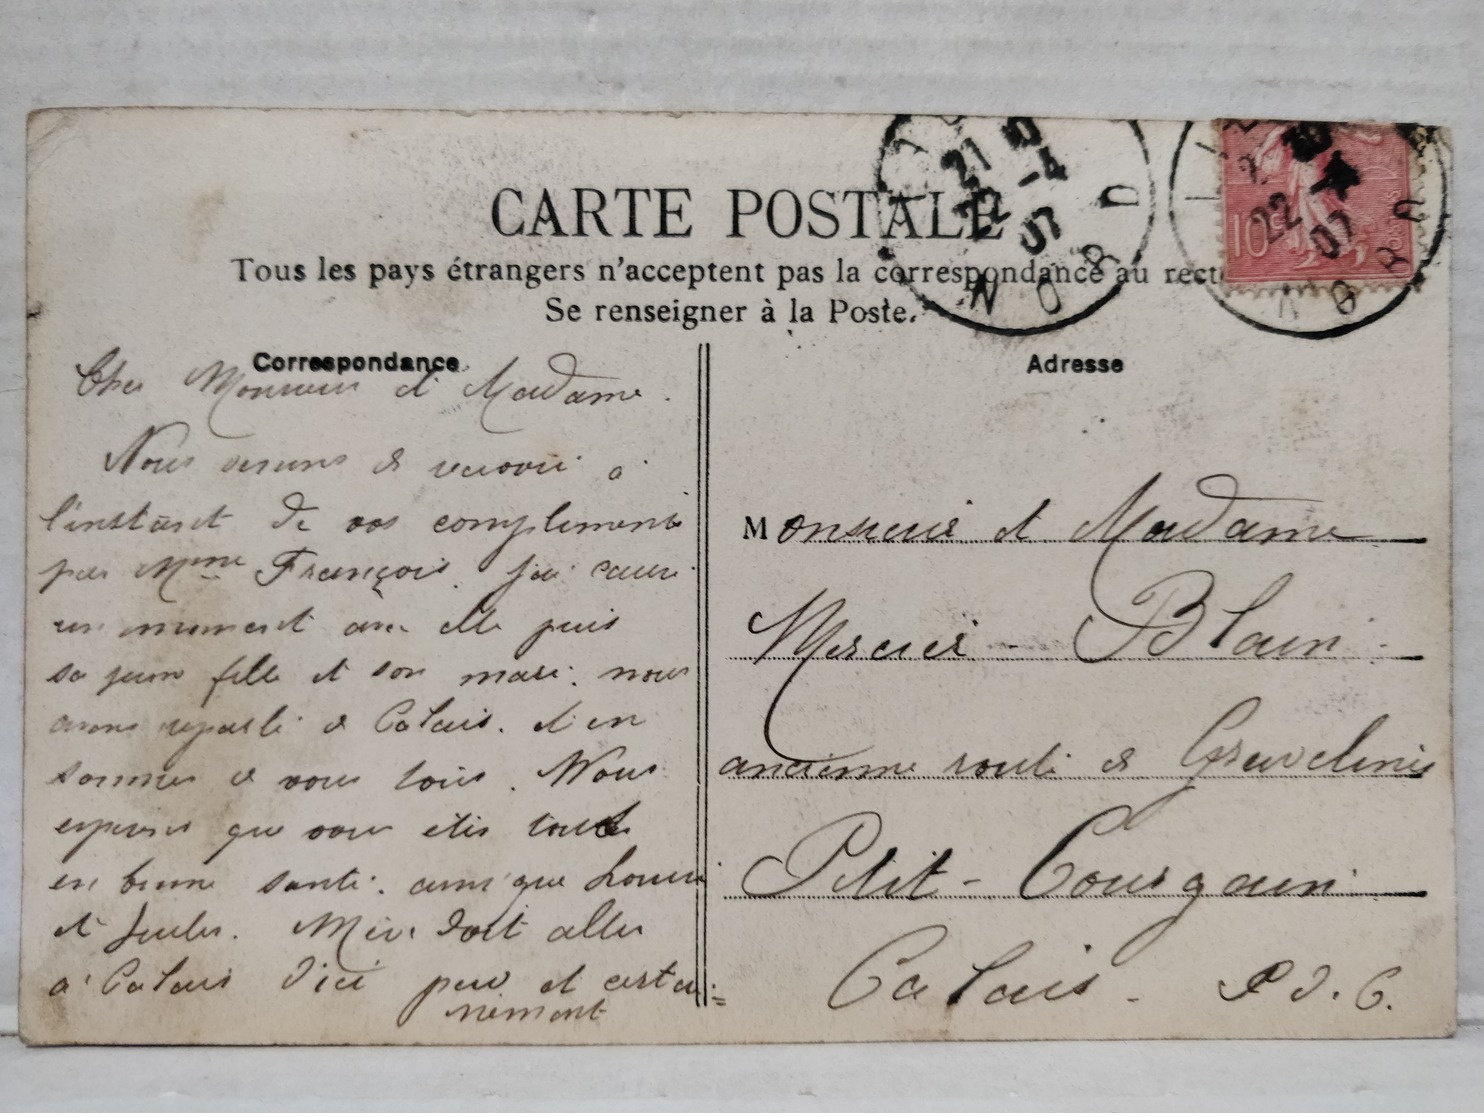 CARTE POSTALE
Tous les pays étrangers n'acceptent pas la correspondance au rect
Se renseigner à la Poste.
Correspondance
Cher Monsieur et Madame.
Nous venons de recevoir a
l'instant de vos compliments
par Mme François. j'ai causé
un moment avec elle puis
sa jeune fille et son mari. nous
avons reparlé de Calais. et en
sommes de vous tous. Nous
esperons que vous etes tous
en bonne santé. ainsi que Louis
et Jules. Mère doit aller
a Calais d'ici peu et certai=
nement
Adresse
Monsieur et Madame
Mercier - Blain
ancienne route de Gravelines
Petit - Courgain
Calais - P. d. C.
21
22 -4
07
NORD
10
22
07
NORD